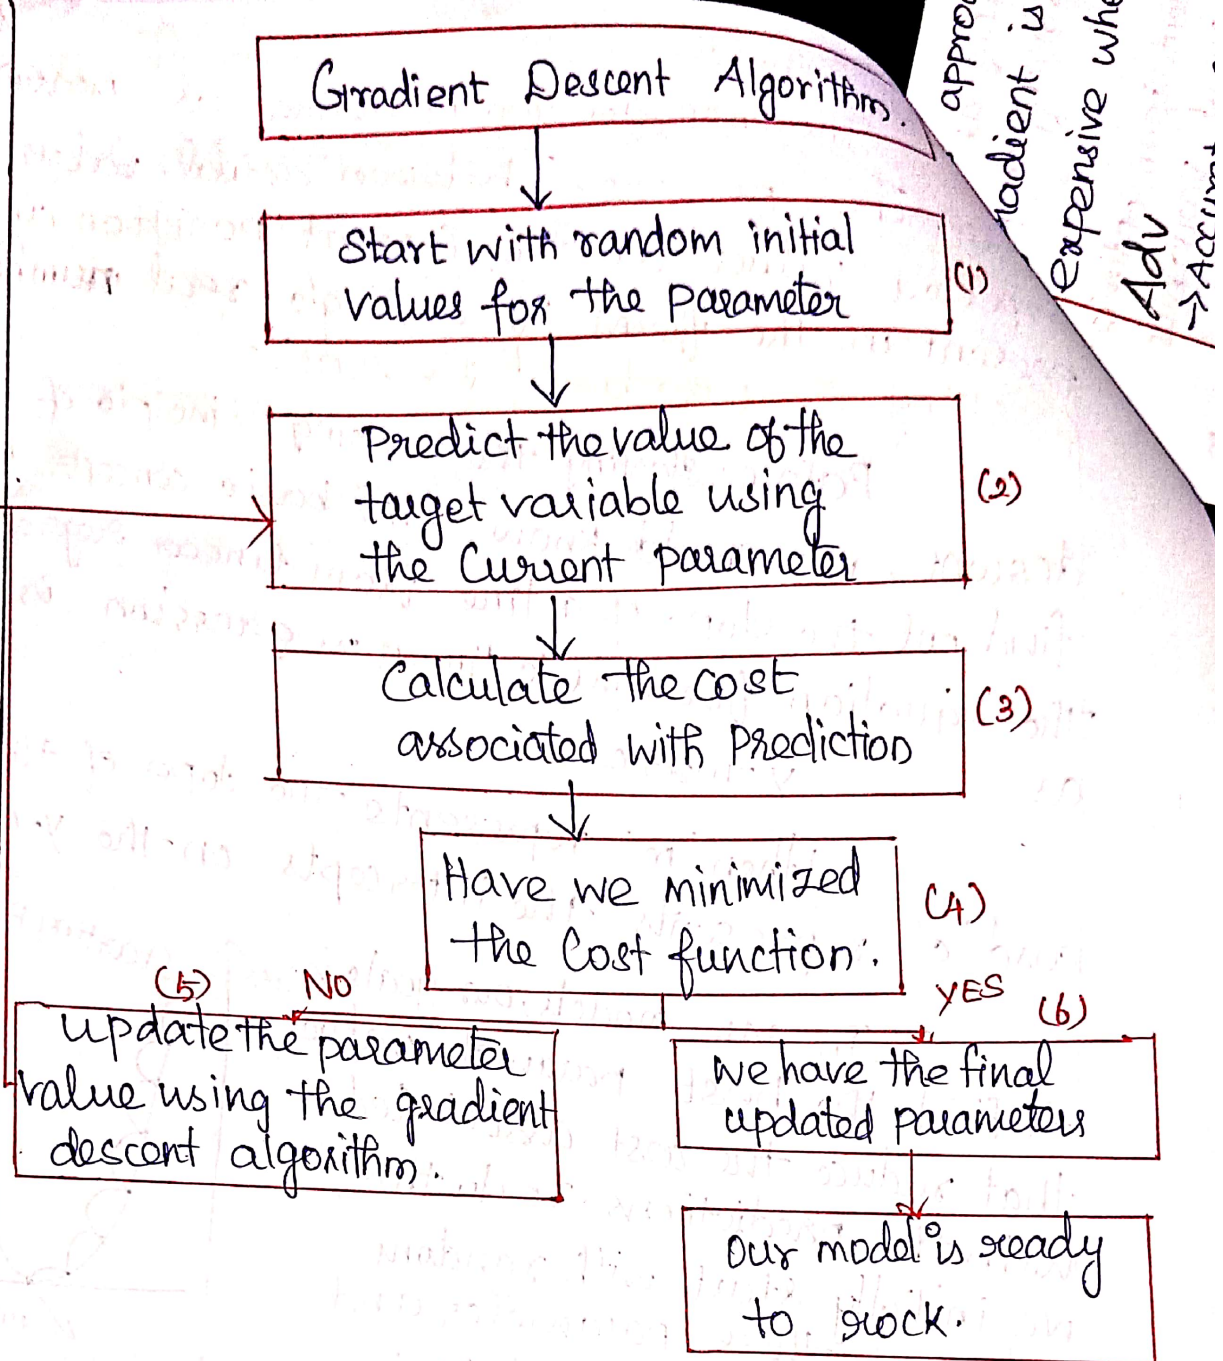 Gradient Descent Algorithm.
Start with random initial
values for the parameter
(1)
Predict the value of the
target variable using
the Current parameter
(2)
Calculate the cost
associated with prediction
(3)
Have we minimized
the Cost function.
(4)
(5) NO
YES (6)
update the parameter
value using the gradient
descent algorithm.
we have the final
updated parameters
our model is ready
to rock.
adient is
expensive
Adv